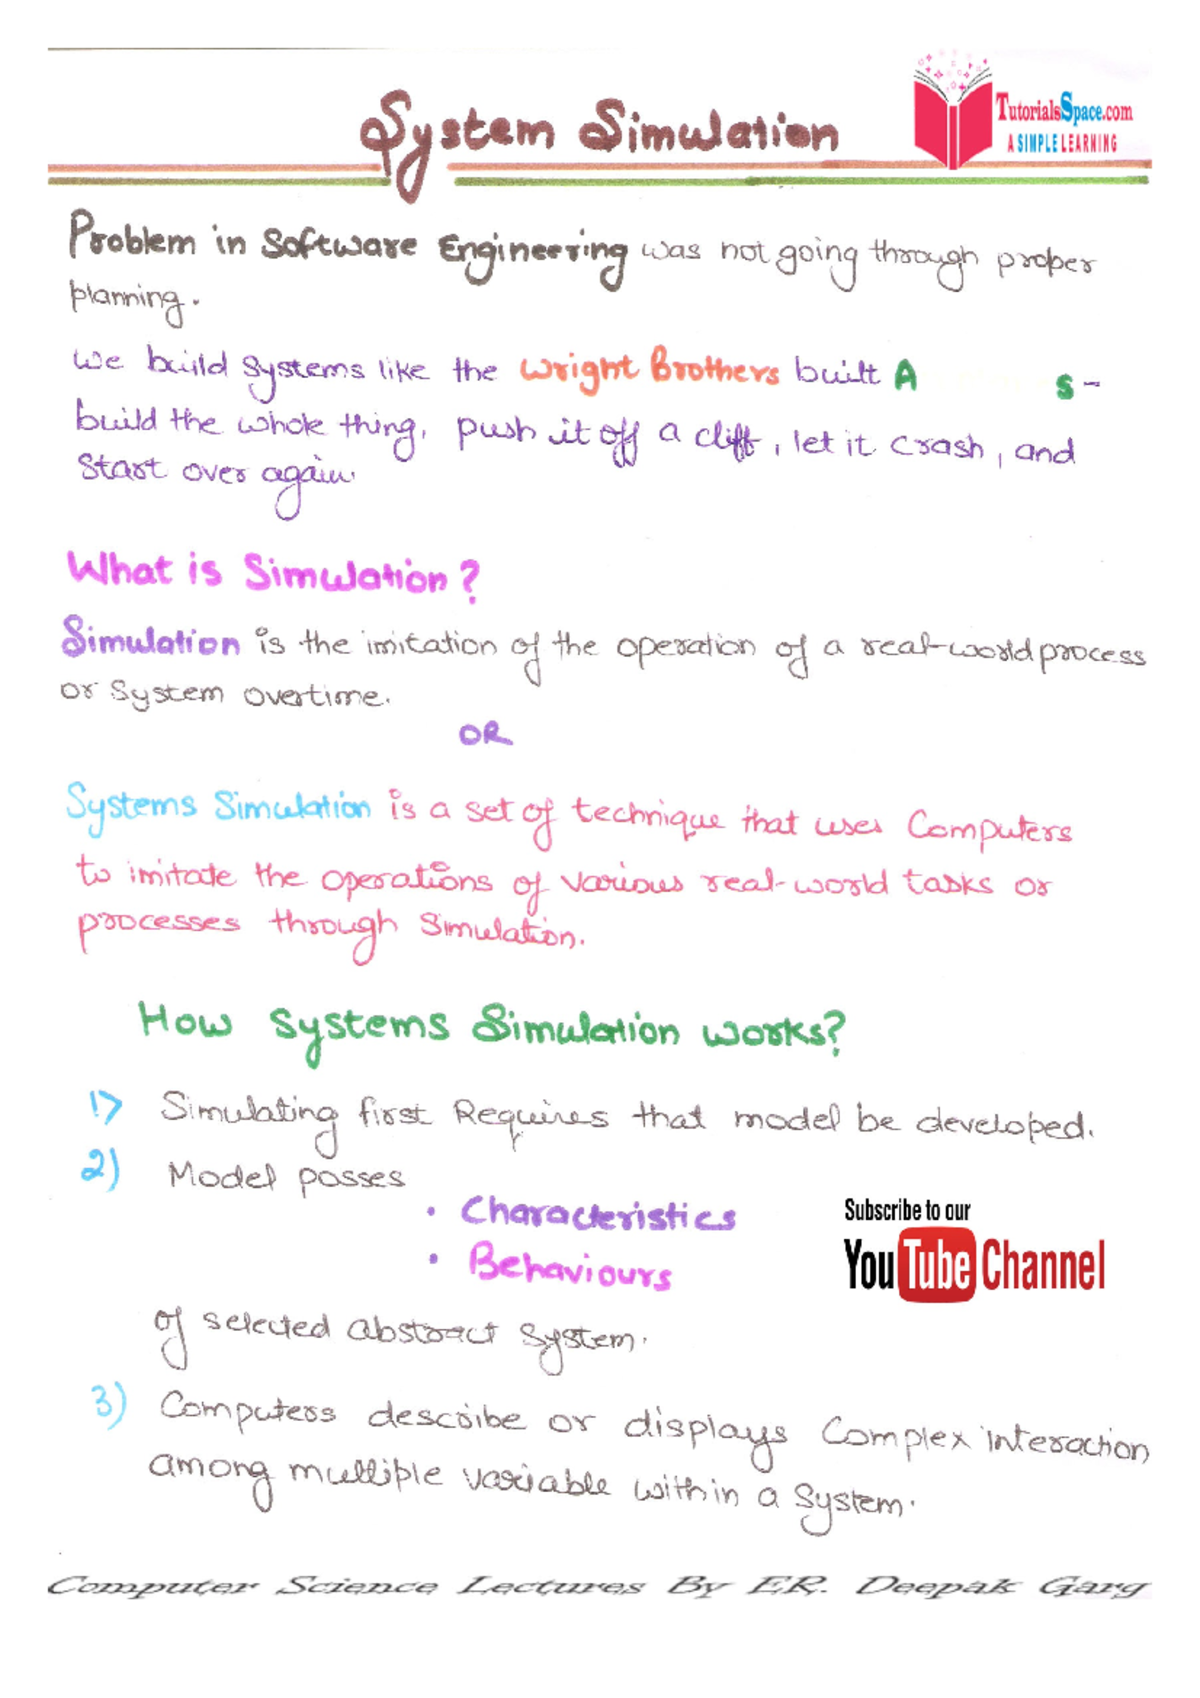 System Simulation
TutorialsSpace.com
A SIMPLE LEARNING
Problem in Software Engineering was not going through proper
planning.
We build systems like the Wright Brothers built A s -
build the whole thing, push it off a cliff, let it crash, and
Start over again.
What is Simulation?
Simulation is the imitation of the operation of a real-world process
or System overtime.
OR
Systems Simulation is a set of technique that uses Computers
to imitate the operations of various real-world tasks or
processes through Simulation.
How Systems Simulation works?
1) Simulating first Requires that model be developed.
2) Model posses
• Characteristics
• Behaviours
Subscribe to our
YouTube Channel
of selected abstract system.
3) Computers describe or displays Complex interaction
among multiple variable within a System.
Computer Science Lectures By ER. Deepak Garg